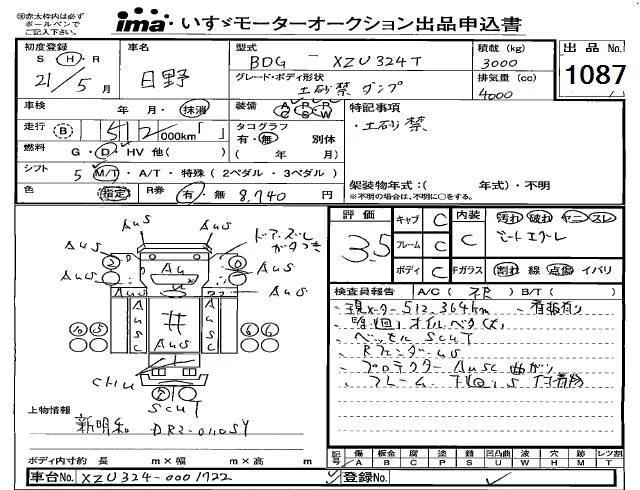 ◎赤太枠内は必ず
ボールペンで
ご記入下さい。
ima いすゞモーターオークション出品申込書
初度登録 S H・R 21/5月
車名 日野
型式 BDG - XZU324T
グレード・ボディ形状 土砂禁ダンプ
積載 (kg) 3000
排気量 (cc) 4000
出品 No. 1087
車検 年・月・抹消
装備 A P R C S W
特記事項
・土砂禁
走行 B 512 000km「 」
タコグラフ 有・無 別体 ( 年 月)
燃料 G・D・HV 他( )
シフト 5 M/T・A/T・特殊(2ペダル・3ペダル)
色 指定 R券 有・無 8,740円
架装物年式:( 年式)・不明
※不明の場合は、不明に○をする。
評価 3.5
キャブ C
フレーム C
ボディ C
内装 C
汚れ 破れ ヤニ・スレ
Fガラス 割れ 線 点傷 イバリ
ドアーズレ
ガタつき
AuS AuS
AuS AuS
Au
AuS
AuSC AuSC
AuS
6 6
CHU
SCUT
検査員報告 A/C( ) B/T( )
現メーター 512,364km 、看板有り
オイルベタ
ベッセル SCUT
Rフェンダー US
プロテクター AUSC 曲がり
フレーム 下回り S 付着物
上物情報
新明和 DR2-0110SY
ボディ内寸約 長 m×幅 m×高 m
記号 傷 A 板金 B 腐 C 塗 P 錆 S 凹凸曲 U 波 W 穴 H 跡 M レツ割 T
車台No. XZU324-0001722
登録No.